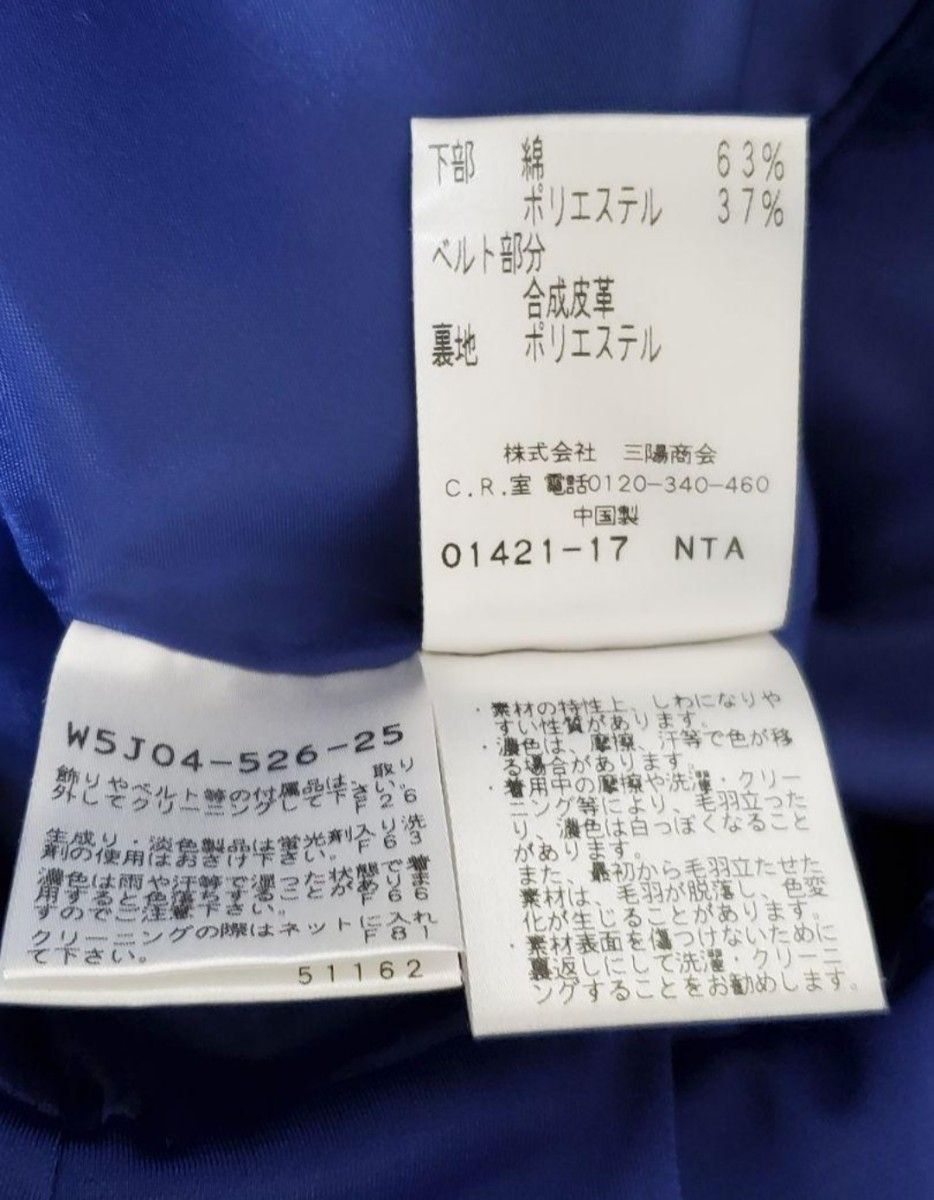 下部 綿 63%
ポリエステル 37%
ベルト部分
合成皮革
裏地 ポリエステル
株式会社 三陽商会
C.R.室 電話0120-340-460
中国製
01421-17 NTA
W5J04-526-25
飾りやベルト等の付属品は、取り
外してクリーニングして下さい。
F26
生成り・淡色製品は蛍光剤入り洗
剤の使用はおさけ下さい。 F63
濃色は雨や汗等で湿った状態で着
用すると色落ちすることがありま
すのでご注意下さい。 F66
クリーニングの際はネットに入れ
て下さい。 F81
51162
・素材の特性上、しわになりや
すい性質があります。
・濃色は、摩擦、汗等で色が移
る場合があります。
・着用中の摩擦や洗濯・クリー
ニング等により、毛羽立った
り、濃色は白っぽくなること
があります。
また、最初から毛羽立たせた
素材は、毛羽が脱落し、色変
化が生じることがあります。
・素材表面を傷つけないために
裏返しにして洗濯・クリーニ
ングすることをお勧めします。